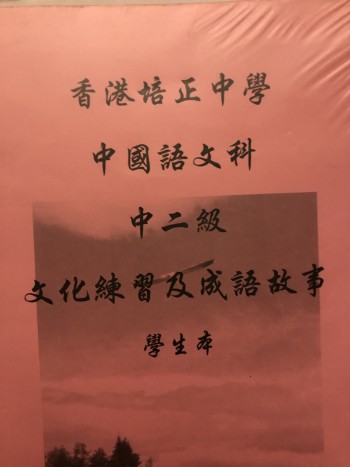 香港培正中學
中國語文科
中二級
文化練習及成語故事
學生本